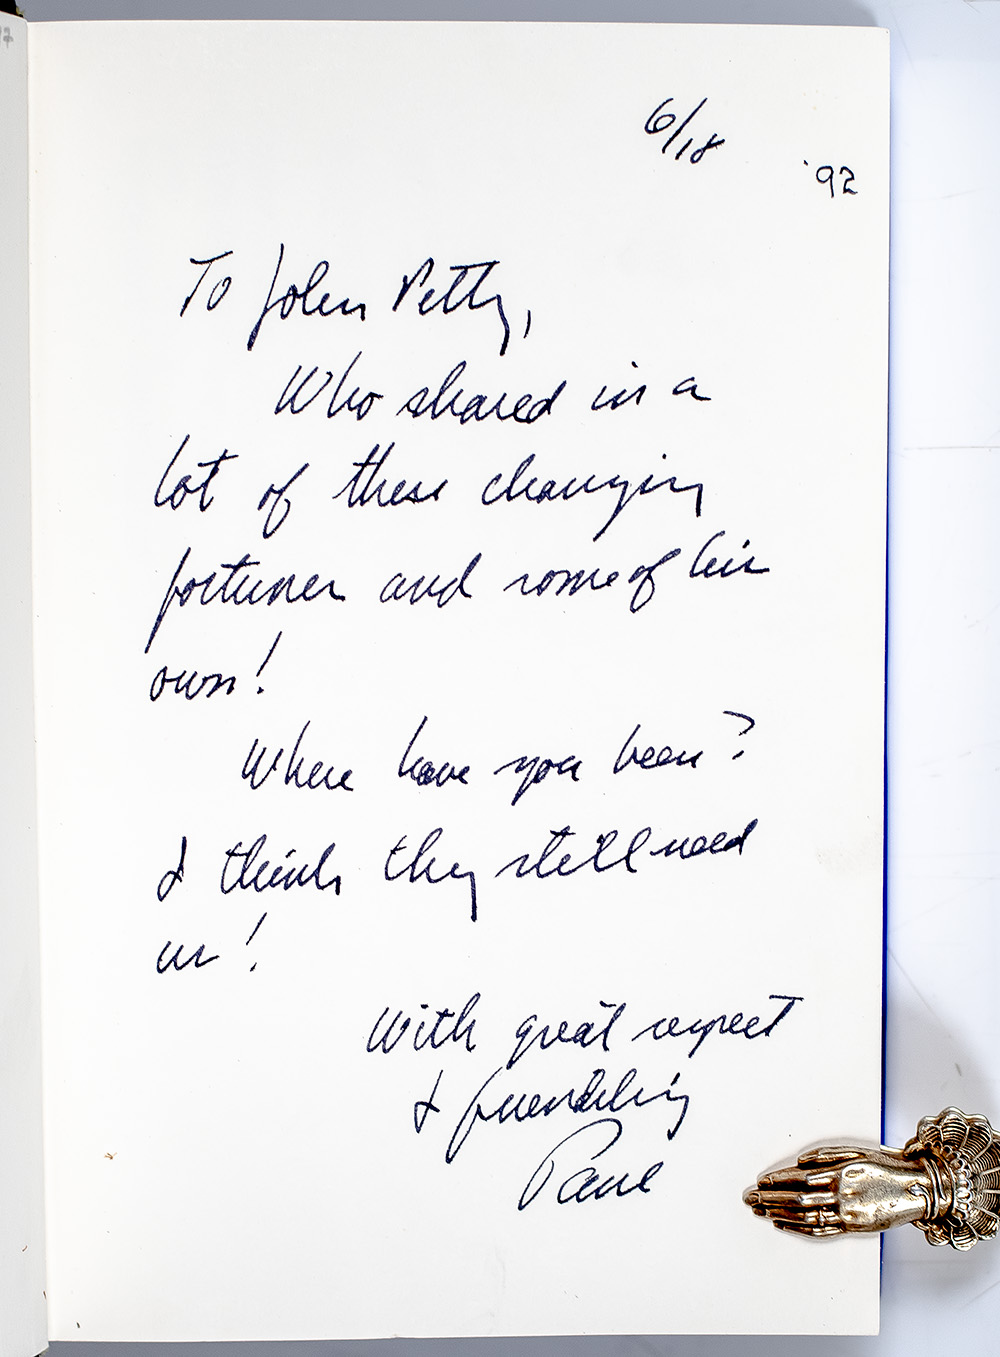 6/18 '92
To John Petty,
Who shared in a
lot of these changing
fortunes and some of his
own!
Where have you been?
I think they still need
us!
With great respect
& friendship
Paul